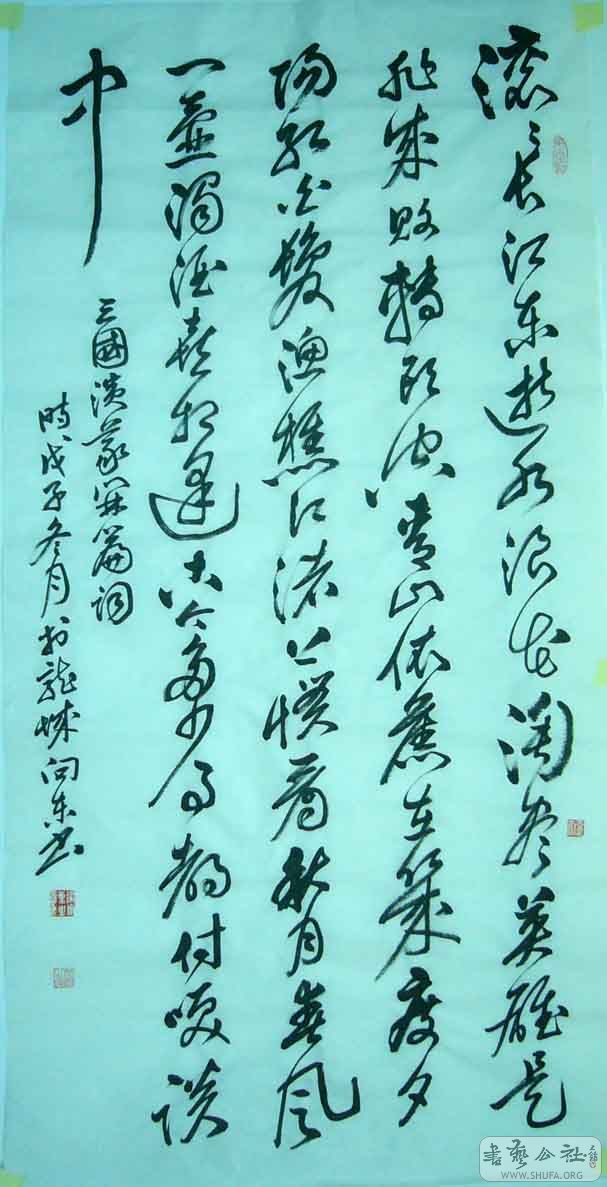 滚〻长江东逝水浪花淘尽英雄是
非成败转头空青山依旧在几度夕
阳红白发渔樵江渚上惯看秋月春风
一壶浊酒喜相逢古今多少事都付笑谈
中
三國演义开篇词
時戊子冬月於龍城向东书
書藝公社
WWW.SHUFA.ORG